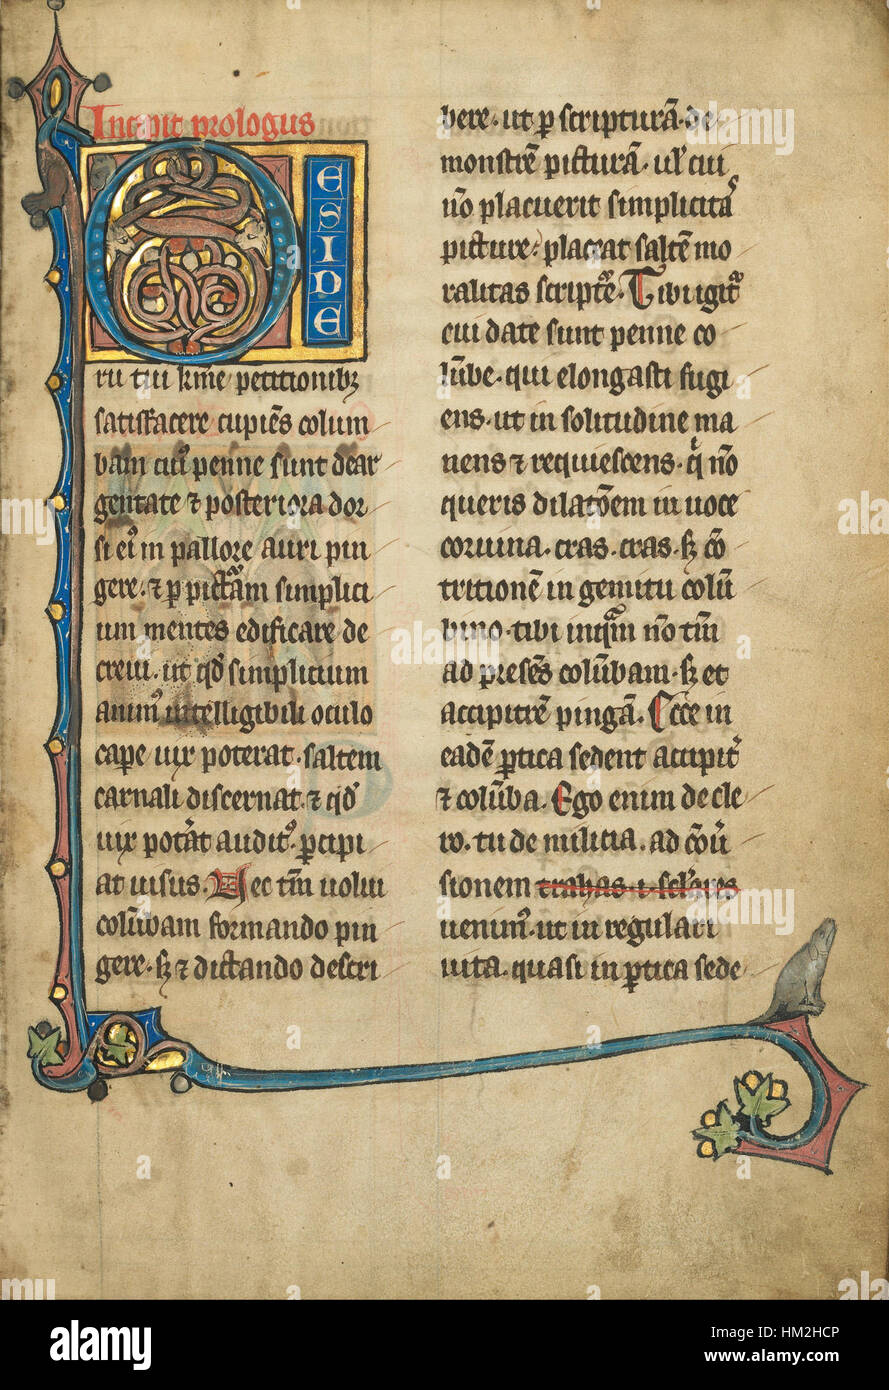 Incipit prologus
DESIDE
rii tui kͬme petitionibꝫ
satisfacere cupiēs colum
bam cuiꝰ penne sunt dear
gentate ⁊ posteriora dor
si eiꝰ in pallore auri pin
gere. ⁊ ꝑ picturam simplici
um mentes edificare de
creui. ut qd̓ simplicium
animꝰ intelligibili oculo
capere uix poterat. saltem
carnali discernat. ⁊ qd̓
uix pot̓at auditꝰ. ꝑcipi
at uisus. Nec tm̄ uolui
colūbam formando pin
gere. sꝫ ⁊ dictando descri
bere. ut ꝑ scripturā. de
monstrē picturā. ul̓ cui
nō placuerit simplicitas
picture. placeat saltē mo
ralitas scripture. Tibi igit̓
cui date sunt penne co
lūbe. qui elongasti fugi
ens. ut in solitudine ma
nens ⁊ requiescens. qͥ nō
queris dilatōem in uoce
coruina. cras. cras. sꝫ cō
tritionē in gemitu colū
bino. tibi inquam nō tm̄
ad presēs colūbam. sꝫ et
accipitrē pingā. Ecce in
eadē ꝑtica sedent accipit̓
⁊ colūba. Ego enim de cle
ro. tu de milicia. ad cōuer
sionem
uenimꝰ. ut in regulari
uita. quasi in ꝑtica sede
alamy stock photo
Image ID: HM2HCP
www.alamy.com